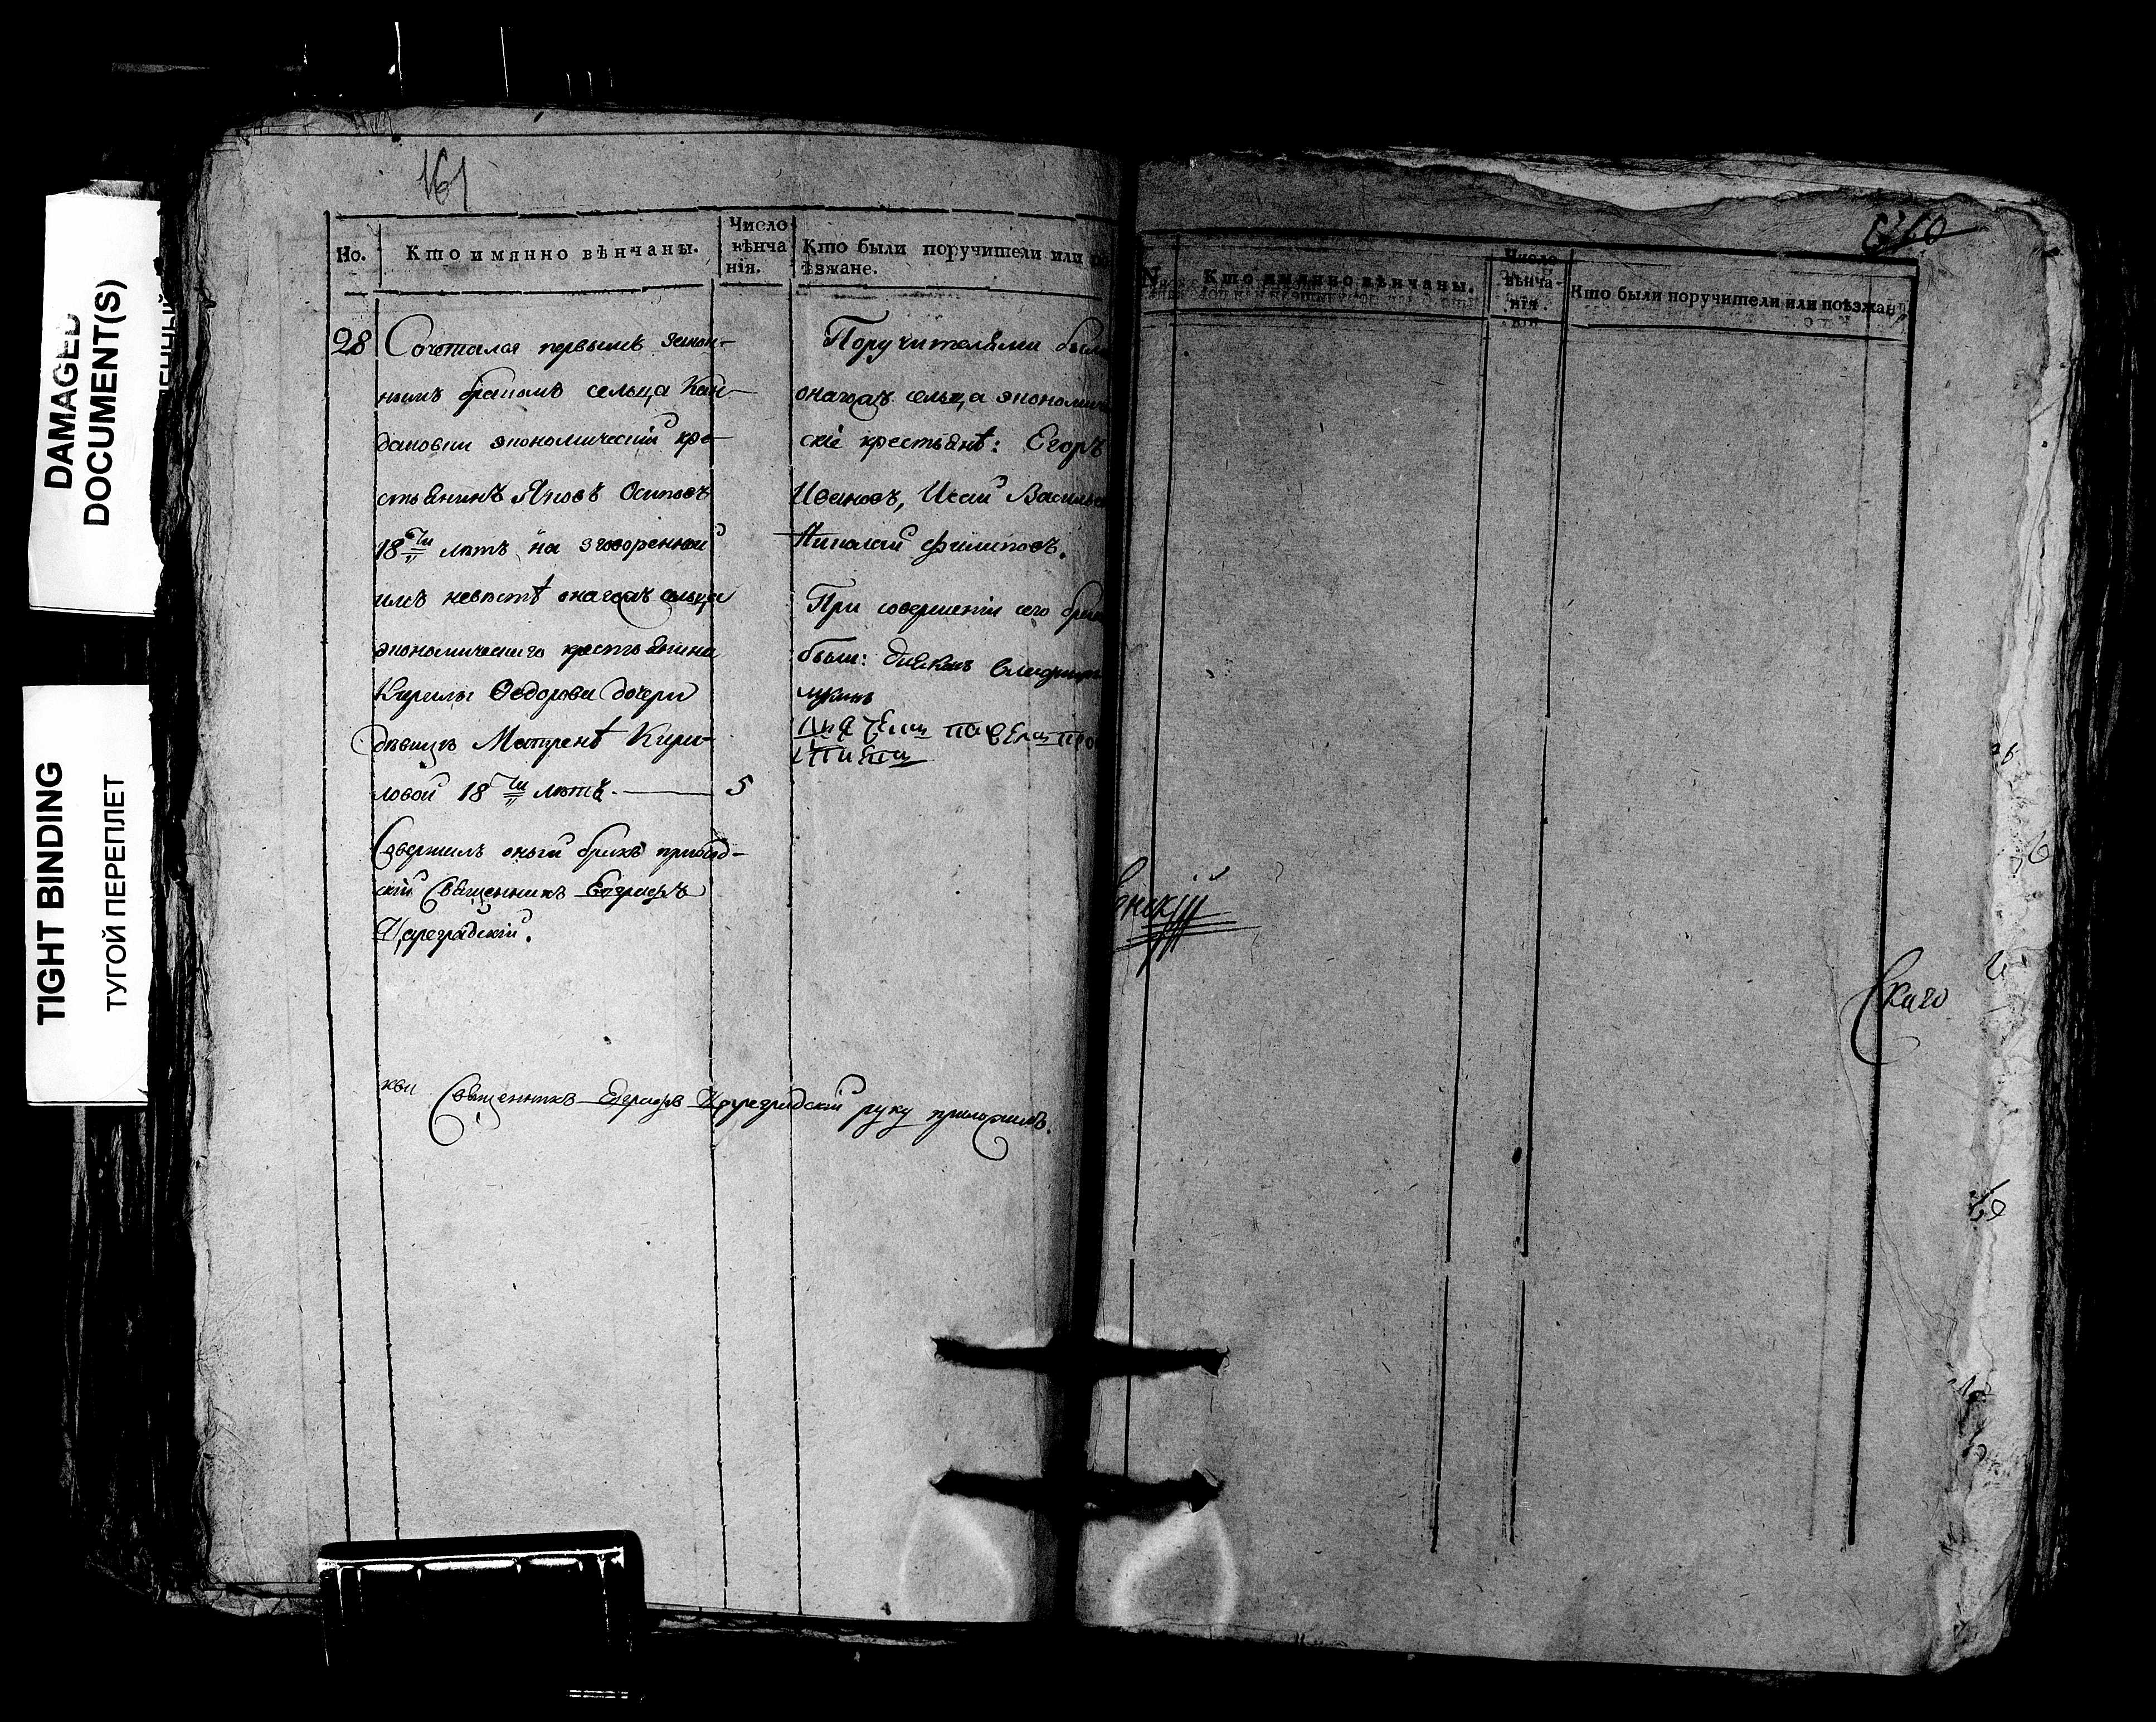 DAMAGED
DOCUMENT(S)
TIGHT BINDING
ТУГОЙ ПЕРЕПЛЕТ
161
Но.
Кто имянно вѣнчаны.
Число вѣнчанія.
Кто были поручители или
ѣзжане.
28 Сочетался первымъ закон-
нымъ бракомъ сельца Кан-
дановки экономическій кре-
стьянинъ Яковъ Осиповъ
18ти лѣтъ на зговоренной
имъ невѣстѣ онагожъ сельца
экономическаго крестьянина
Кирилы Ѳедорова дочери
дѣвицѣ Матренѣ Кири-
ловой 18ти лѣтъ. 5
Совершилъ оный бракъ приход-
скій Священникъ Евграфъ
Цареградскій.
Поручителями были
онагожъ сельца экономиче
скіе крестьянѣ: Егоръ
Ивановъ, Исай Василье
Николай Филиповъ.
При совершеніи сего брака
были:
кви Священникъ Евграфъ Цареградскій руку приложилъ.
N
Кто имянно вѣнчаны.
Число вѣнча-
нія.
Кто были поручители или поѣзжан
енскій
Скаго